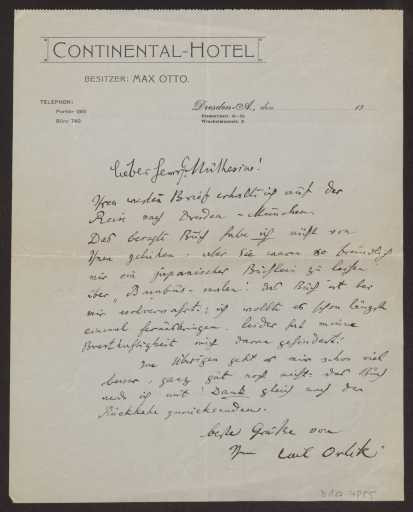 CONTINENTAL-HOTEL
BESITZER: MAX OTTO.
TELEPHON:
Portier
Büro
Dresden-A., den 19
Lieber Herr Muthesius!
Ihren werten Brief erhalte ich auf der
Reise nach Dresden - München.
Das Buch habe ich nicht von
Ihnen geliehen. aber Sie waren so freundlich
mir ein japanisches Büchlein zu leihen
über „Bambus-malen". das Buch ist bei
mir wohlverwahrt; ich wollte es schon längst
einmal leider hat meine
mich daran gehindert.
Im Übrigen geht es mir schon viel
besser, ganz gut noch nicht. das Buch
werde ich mit Dank gleich nach der
Rückkehr zurücksenden.
beste Grüße von
Ihrem Emil Orlik